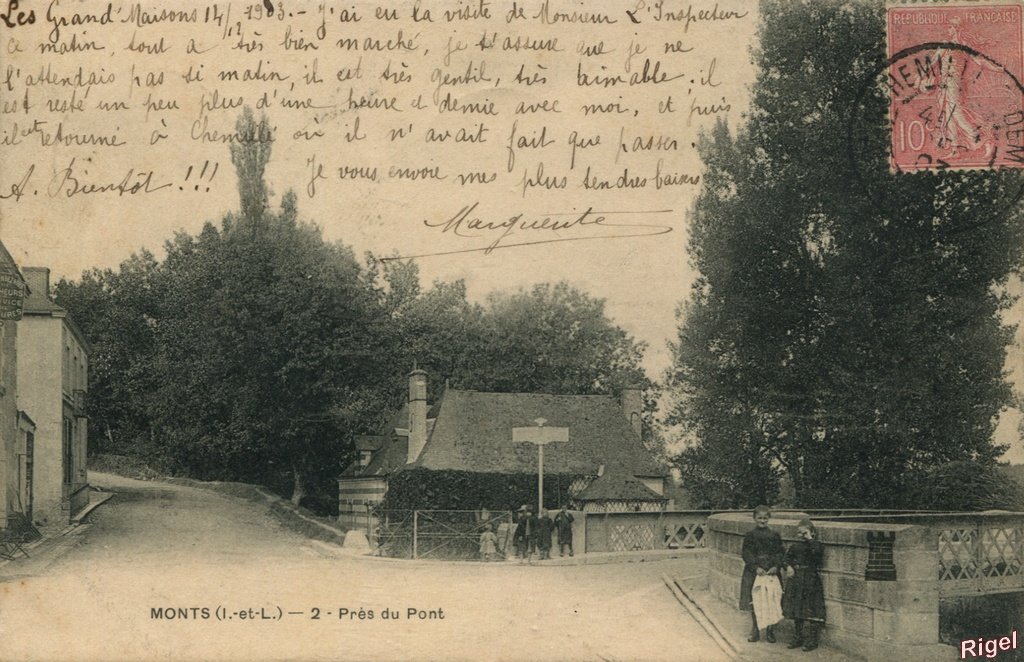 Les Grand'Maisons 14/12 1903. - J'ai eu la visite de Monsieur L'Inspecteur
ce matin, tout a très bien marché, je t'assure que je ne
l'attendais pas si matin, il est très gentil, très aimable; il
est resté un peu plus d'une heure et demie avec moi, et puis
il est retourné à Chemillé où il n'avait fait que passer.
A. Bientôt!!! Je vous envoie mes plus tendres baisers
Marguerite
REPUBLIQUE FRANÇAISE
10
CHEMILLÉ
MONTS (I.-et-L.) — 2 - Près du Pont
Rigel